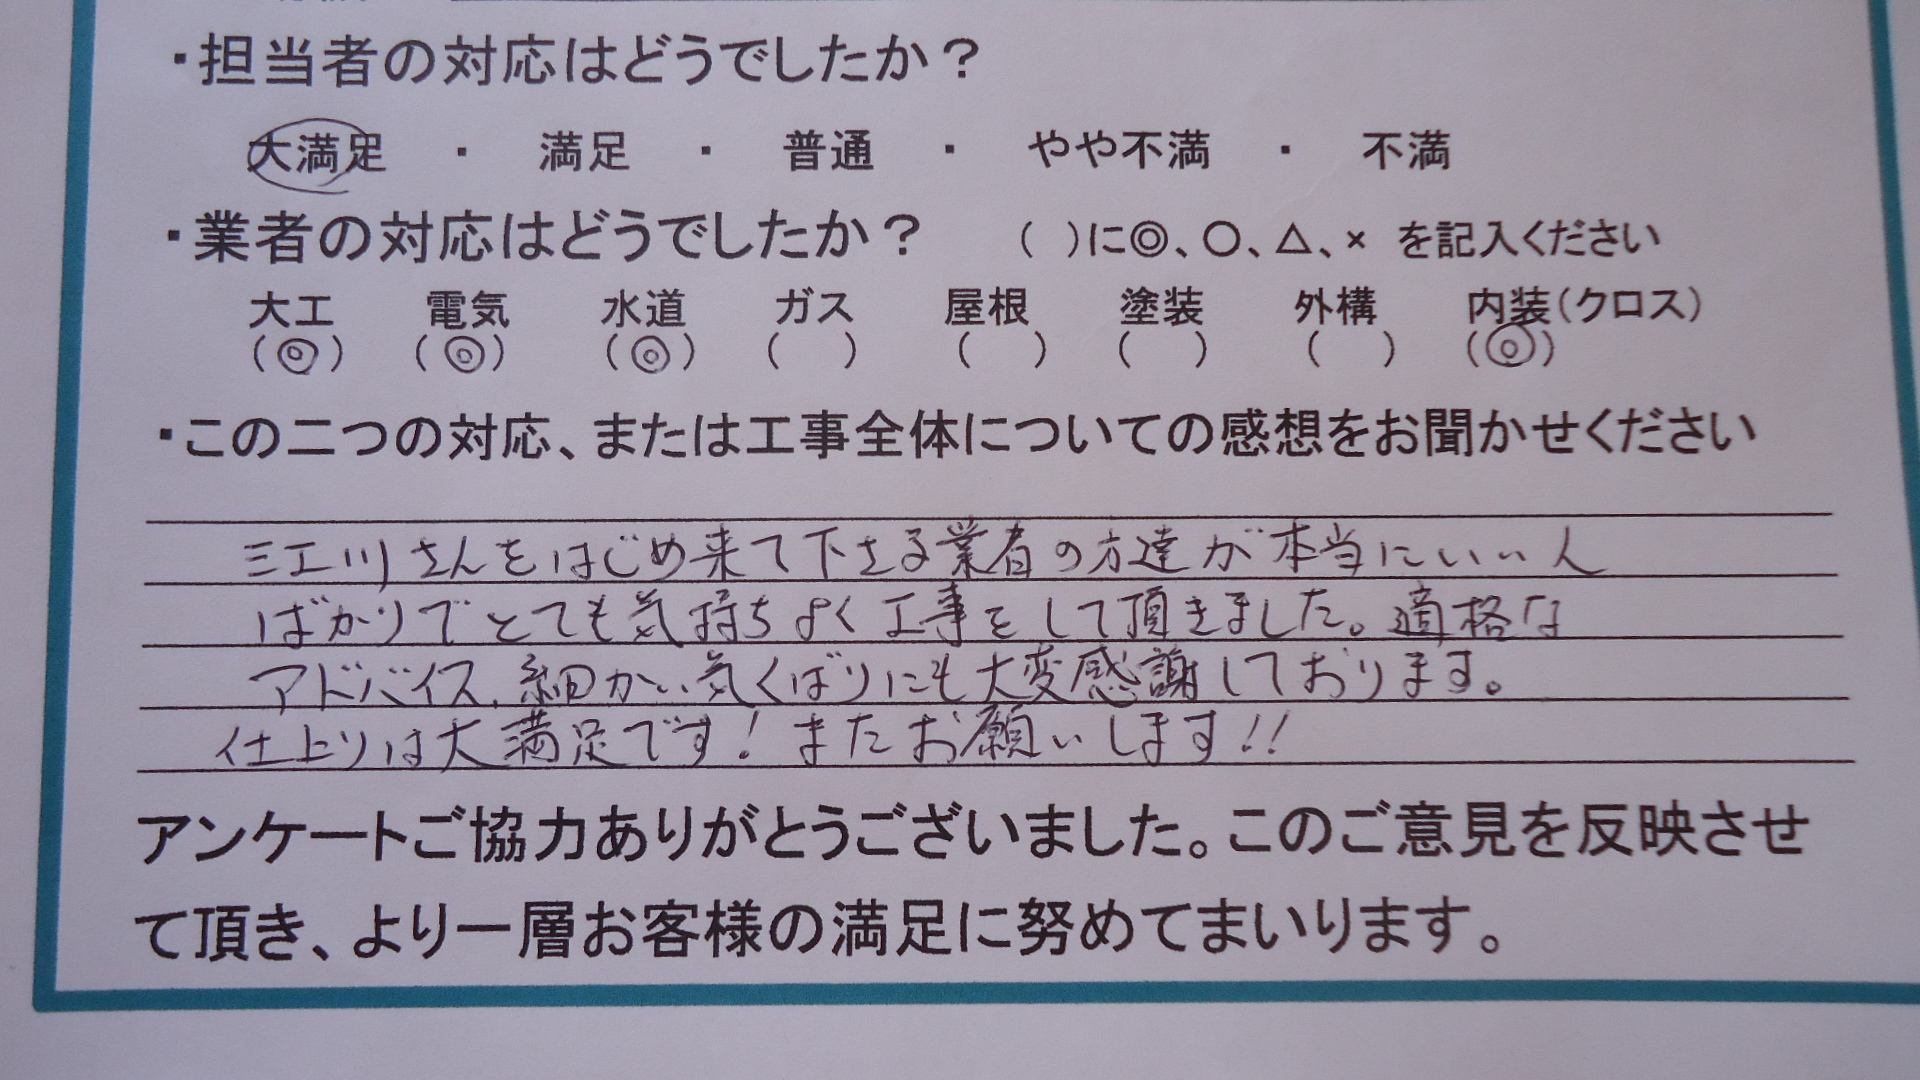 ・担当者の対応はどうでしたか？
大満足 ・ 満足 ・ 普通 ・ やや不満 ・ 不満
・業者の対応はどうでしたか？ （ ）に◎、○、△、× を記入ください
大工 電気 水道 ガス 屋根 塗装 外構 内装（クロス）
（◎） （◎） （◎） （ ） （ ） （ ） （ ） （◎）
・この二つの対応、または工事全体についての感想をお聞かせください
三工川さんをはじめ来て下さる業者の方達が本当にいい人
ばかりでとても気持ちよく工事をして頂きました。適格な
アドバイス、細かい気くばりにも大変感謝しております。
仕上りは大満足です！またお願いします!!
アンケートご協力ありがとうございました。このご意見を反映させ
て頂き、より一層お客様の満足に努めてまいります。